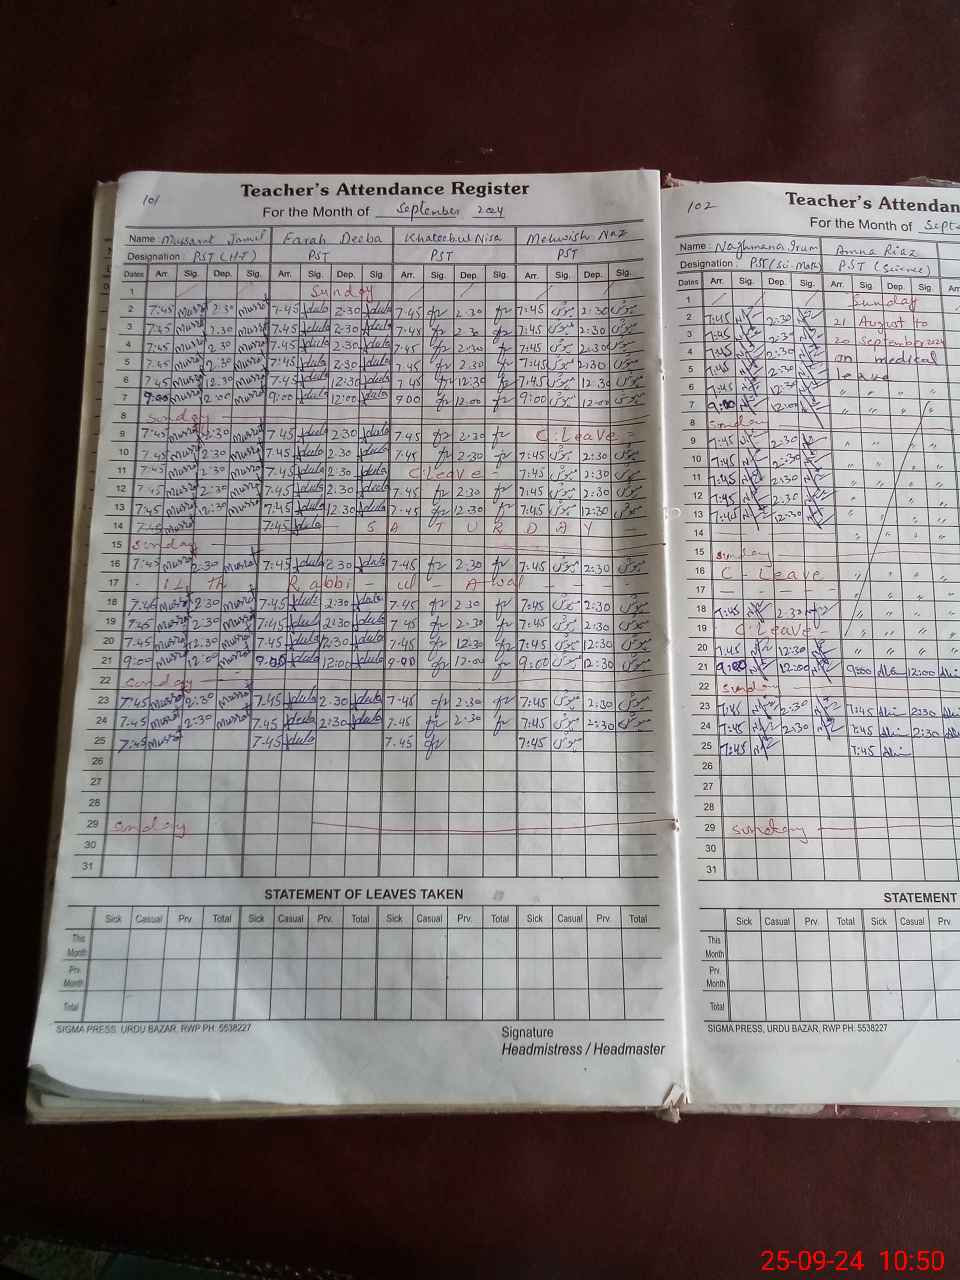 101
Teacher's Attendance Register
For the Month of September 2024
Name: Mussarat Jamil Farah Deeba Khateebul Nisa Mehwish Naz
Designation: PST (H-T) PST PST PST
Dates Arr. Sig. Dep. Sig. Arr. Sig. Dep. Sig Arr. Sig. Dep. Sig. Arr. Sig. Dep. Sig.
1 Sunday
2 7:45 2:30 7:45 2:30 7:45 2:30 7:45 2:30
3 7:45 2:30 7:45 2:30 7:45 2:30 7:45 2:30
4 7:45 2:30 7:45 2:30 7:45 2:30 7:45 2:30
5 7:45 2:30 7:45 2:30 7:45 2:30 7:45 2:30
6 7:45 12:30 7:45 12:30 7:45 12:30 7:45 12:30
7 9:00 12:00 9:00 12:00 9:00 12:00 9:00 12:00
8 Sunday
9 7:45 2:30 7:45 2:30 7:45 2:30 C.Leave
10 7:45 2:30 7:45 2:30 7:45 2:30 7:45 2:30
11 7:45 2:30 7:45 2:30 C Leave 7:45 2:30
12 7:45 2:30 7:45 2:30 7:45 2:30 7:45 2:30
13 7:45 12:30 7:45 12:30 7:45 12:30 7:45 12:30
14 7:45 7:45 SATURDAY
15 Sunday
16 7:45 2:30 7:45 2:30 7:45 2:30 7:45 2:30
17 - 12 th Rabbi - ul - Awal - - - -
18 7:45 2:30 7:45 2:30 7:45 2:30 7:45 2:30
19 7:45 2:30 7:45 2:30 7:45 2:30 7:45 2:30
20 7:45 12:30 7:45 12:30 7:45 12:30 7:45 12:30
21 9:00 12:00 9:00 12:00 9:00 12:00 9:00 12:30
22 Sunday
23 7:45 2:30 7:45 2:30 7:45 2:30 7:45 2:30
24 7:45 2:30 7:45 2:30 7:45 2:30 7:45 2:30
25 7:45 7:45 7:45 7:45
26
27
28
29 Sunday
30
31
STATEMENT OF LEAVES TAKEN
Sick Casual Prv. Total Sick Casual Prv. Total Sick Casual Prv. Total Sick Casual Prv. Total
This Month
Prv. Month
Total
SIGMA PRESS, URDU BAZAR, RWP PH: 5538227
Signature
Headmistress / Headmaster
102
Teacher's Attendan
For the Month of Sept
Name: Naghmana Irum Amna Riaz
Designation: PST (Sci-Math) PST (Science)
Dates Arr. Sig. Dep. Sig. Arr. Sig. Dep. Sig.
1 Sunday
2 7:45 2:30 21 August to
3 7:45 2:30 20 September 2024
4 7:45 2:30 on medical
5 7:45 2:30 leave
6 7:45 12:30 " " " "
7 9:00 12:00 " " " "
8 Sunday
9 7:45 2:30 " " " "
10 7:45 2:30 " " " "
11 7:45 2:30 " " " "
12 7:45 2:30 " " " "
13 7:45 12:30 " " " "
14 " " " "
15 Sunday
16 C - Leave " " " "
17 - - - - " " " "
18 7:45 2:30 " " " "
19 C.Leave - " " " "
20 7:45 12:30 " " " "
21 9:00 12:00 9:00 12:00
22 Sunday
23 7:45 2:30 7:45 2:30
24 7:45 2:30 7:45 2:30
25 7:45 7:45
26
27
28
29 Sunday
30
31
STATEMENT
Sick Casual Prv. Total Sick Casual Prv.
This Month
Prv. Month
Total
SIGMA PRESS, URDU BAZAR, RWP PH: 5538227
25-09-24 10:50